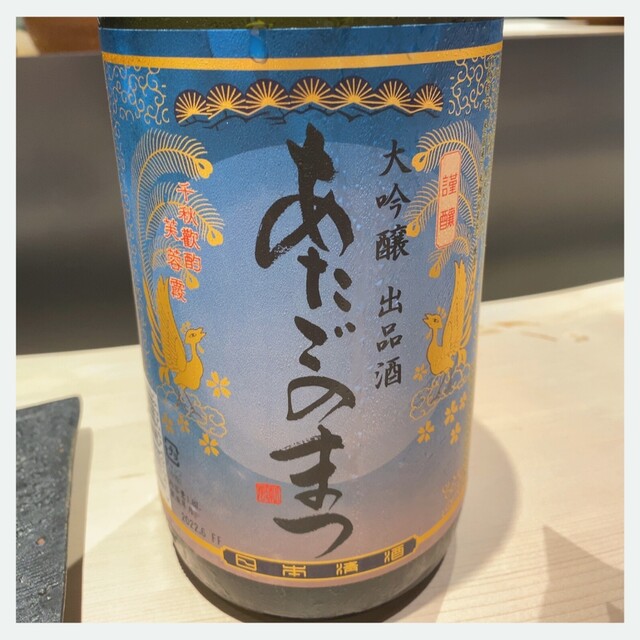 謹醸
大吟醸 出品酒
あたごのまつ
千秋歡酌
芙蓉霞
2022.6
日本清酒